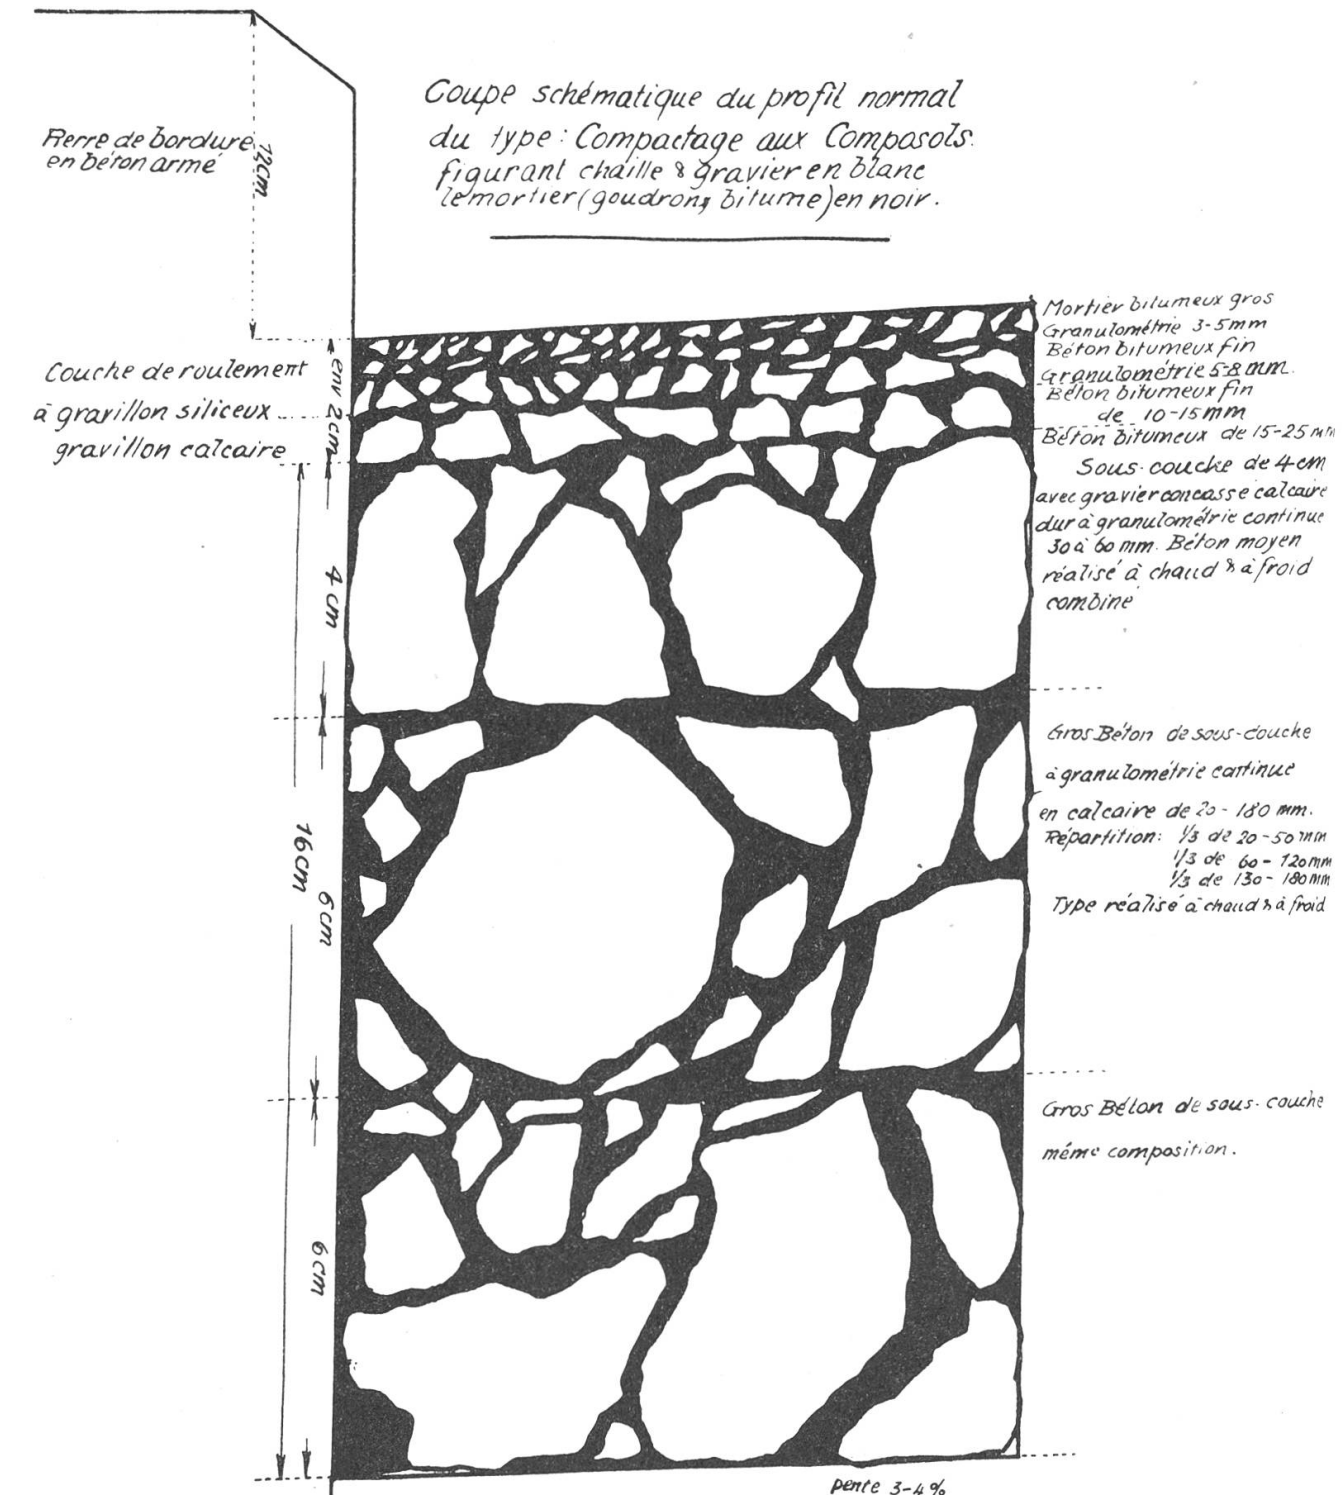 Coupe schématique du profil normal
du type: Compactage aux Composols.
figurant chaille & gravier en blanc
le mortier (goudron, bitume) en noir.
Pierre de bordure
en béton armé
12cm
Couche de roulement
à gravillon siliceux
gravillon calcaire
env 2cm
4 cm
16 cm
6 cm
6 cm
Mortier bitumeux gros
Granulométrie 3-5mm
Béton bitumeux fin
Granulométrie 5-8 mm.
Béton bitumeux fin
de 10-15mm
Béton bitumeux de 15-25 mm
Sous-couche de 4 cm
avec gravier concassé calcaire
dur à granulométrie continue
30 à 60 mm. Béton moyen
réalisé à chaud & à froid
combiné
Gros Béton de sous-couche
à granulométrie continue
en calcaire de 20-180 mm.
Répartition: 1/3 de 20-50 mm
1/3 de 60-120 mm
1/3 de 130-180 mm
Type réalisé à chaud & à froid
Gros Béton de sous-couche
même composition.
pente 3-4%